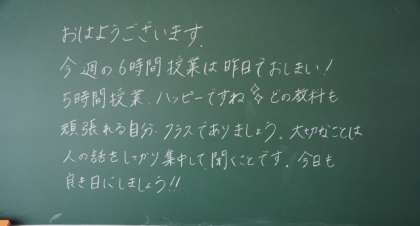 おはようございます。
今週の6時間授業は昨日でおしまい!
5時間授業、ハッピーですね どの教科も
頑張れる自分・クラスでありましょう。大切なことは
人の話をしっかり集中して、聞くことです。今日も
良き日にしましょう!!